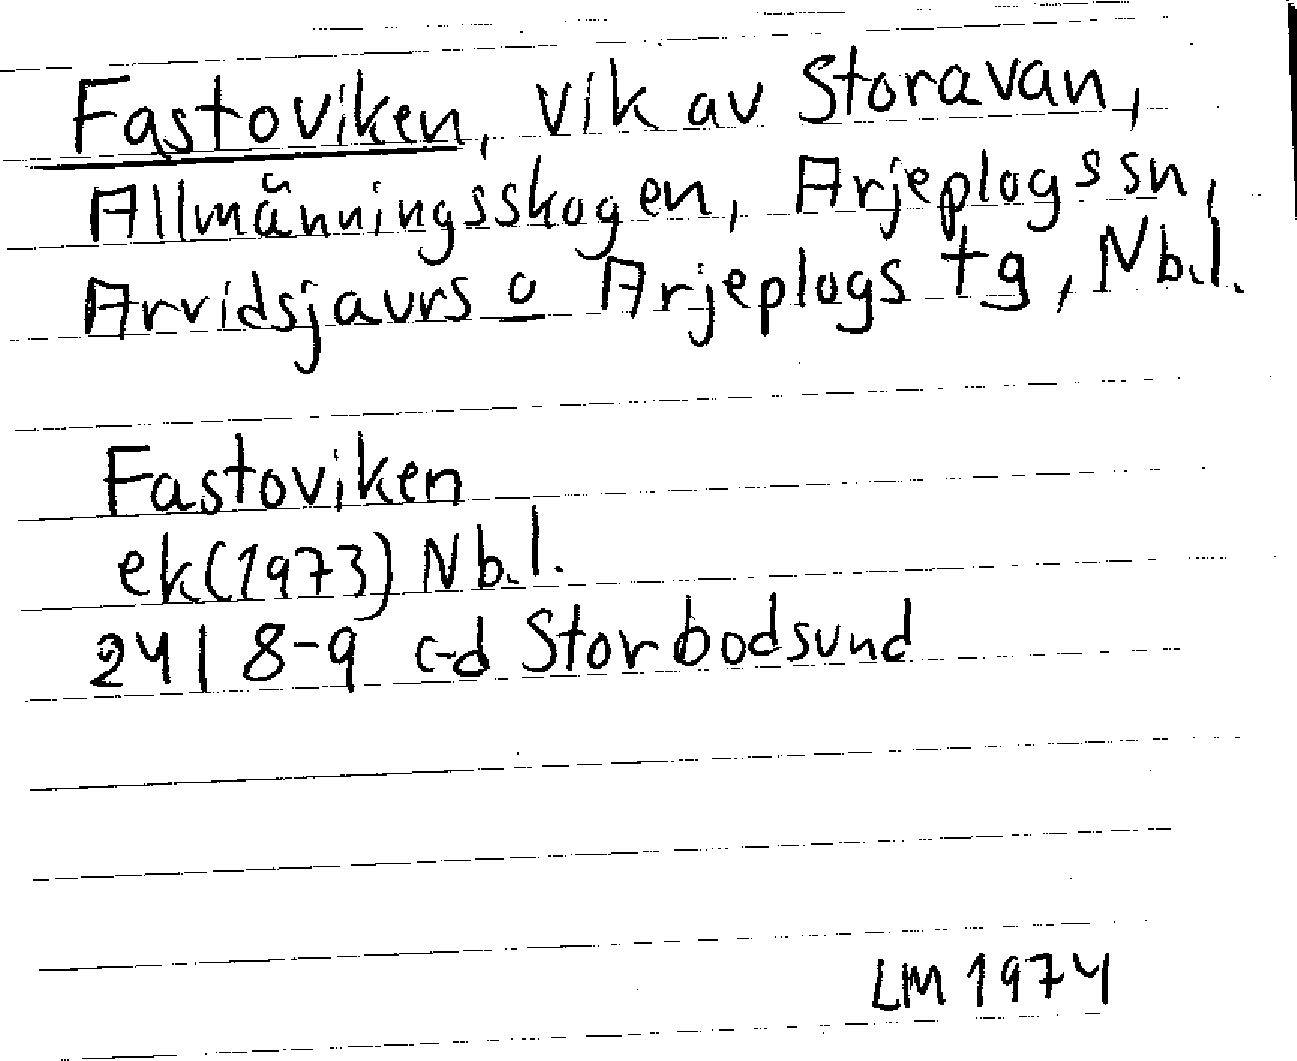 Fastoviken, vik av Storavan,
Allmänningsskogen, Arjeplogs sn,
Arvidsjaurs o Arjeplogs tg, Nb.l.
Fastoviken
ek(1973) Nb.l.
24I 8-9 c-d Storbodsund
LM 1974